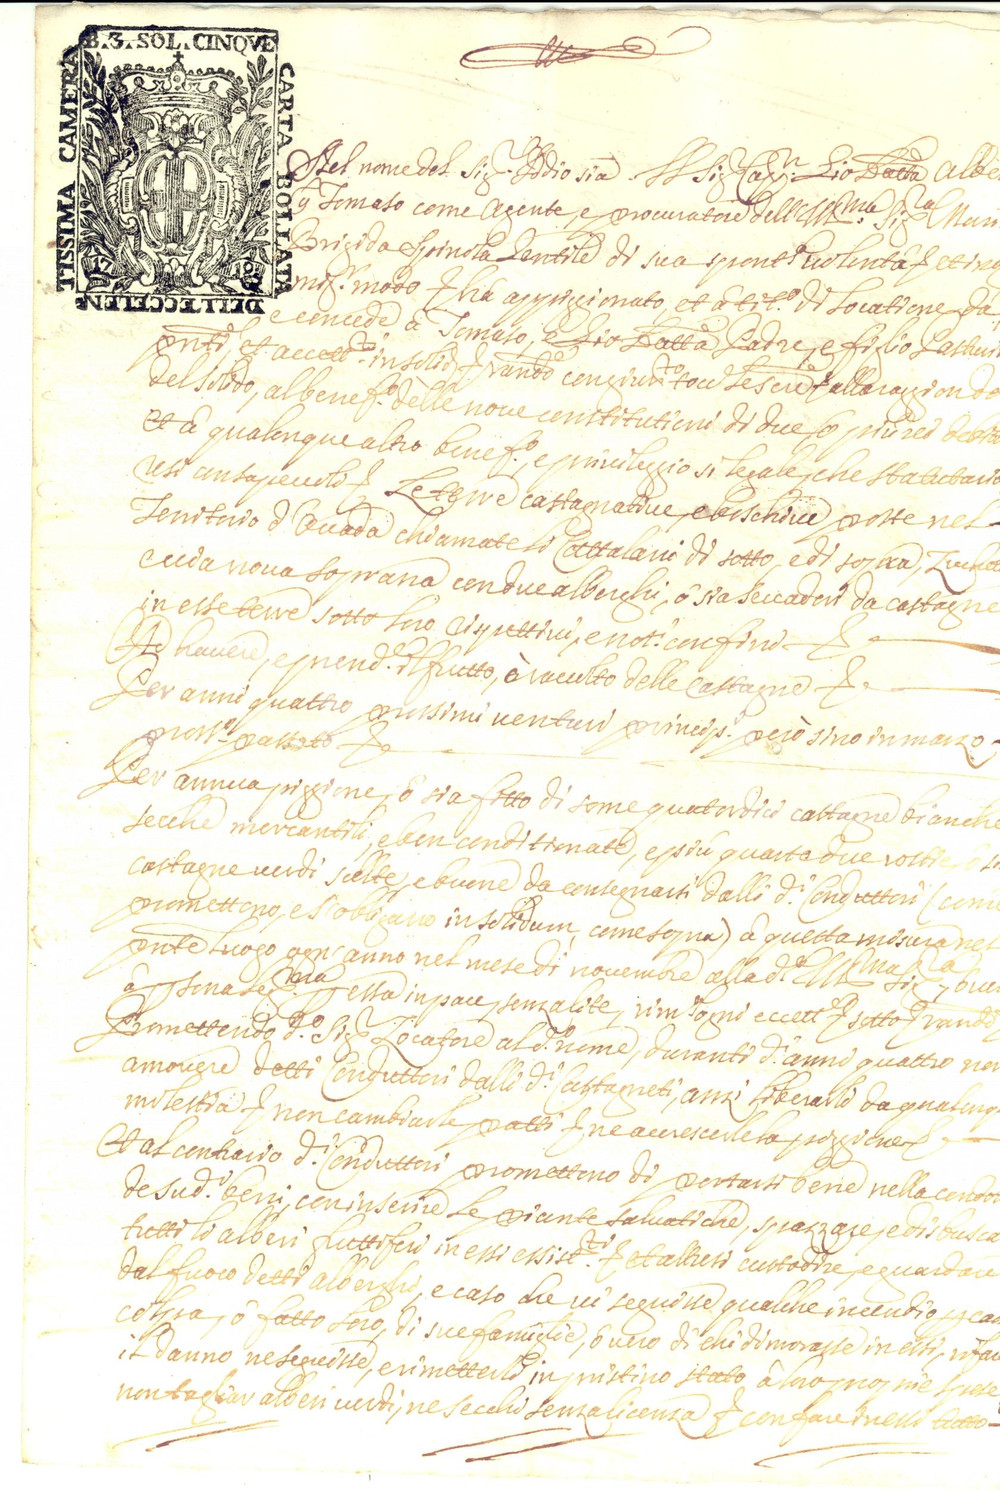 B. 3. SOL. CINQVE
CARTA BOLLATA
DELL'ECCELEN
TISSIMA CAMERA
17 18
Nel nome del Sig.r Iddio sia. Il Sig. Cap.n Gio Batta Albe
q Tomaso come Agente, e procuratore dell'Ill.ma Sig.ra Mari
Brigida Spinola Gentile di sua spont.a volontà et in og
mig.r modo hà appiggionato et à tit.o di Locatione dà,
e concede à Tomaso, e Gio Batta Padre, e figlio
pnti et accett.ti in solid
del solido, al benef.o delle nove constitutioni di due, o più rei
et à qualonque altro benef.o, e privileggio sì legale, che statutario
resi consapevoli Le terre castagnative, e boschive poste nel
Territorio d chiamate li Cattalani di sotto, e di sopra,
nova soprana con due alberghi, ò sia seccadori da castagne
in esse terre sotto loro rispettivi, e noti confini
Ad havere, e prend.e il frutto, ò racolto delle Castagne
Per anni quattro prossimi venturi princip. però sino in marzo
pross.o passato
Per annua piggione, ò sia fitto di some quatordici castagne bianche
secche mercantili, e ben conditionate, e più quarta due rostie, ò sia
castagne verdi scelte, e buone da consegnarsi dalli d.i Conduttori (come
promettono, e s'obligano in solidum, come sopra) à questa misura nel
pnte luogo ogn'anno nel mese di novembre alla d.a Ill.ma Sig.ra, ò
à psona leg.ma p essa in pace, senza lite, rim.a ogni eccett.e sotto
Promettendo d.o Sig.r Locatore al d.o nome, duranti d.i anni quattro non
amovere detti Conduttori dalli d.i Castagneti, anzi liberarli da qualonq
molestia non cambiarle patti ne accrescerle la piggione
Et al contrario d.i Conduttori promettono di portarsi bene nella condot
de sud.i beni, con inserire le piante salvatiche, spazzare, e disbosca
tutti li alberi fruttiferi in essi esist.ti et altresi custodire, e guardare
dal fuoco detti alberghi, e caso che vi seguisse qualche incendio p
colpa, ò fatto loro, di sue famiglie, ò vero di chi dimorasse in essi, rifar
il danno ne seguisse, e rimetterli in pristino stato à loro pprie spese
non tagliar alberi verdi, ne secchi senza licenza con fare in essi tutto